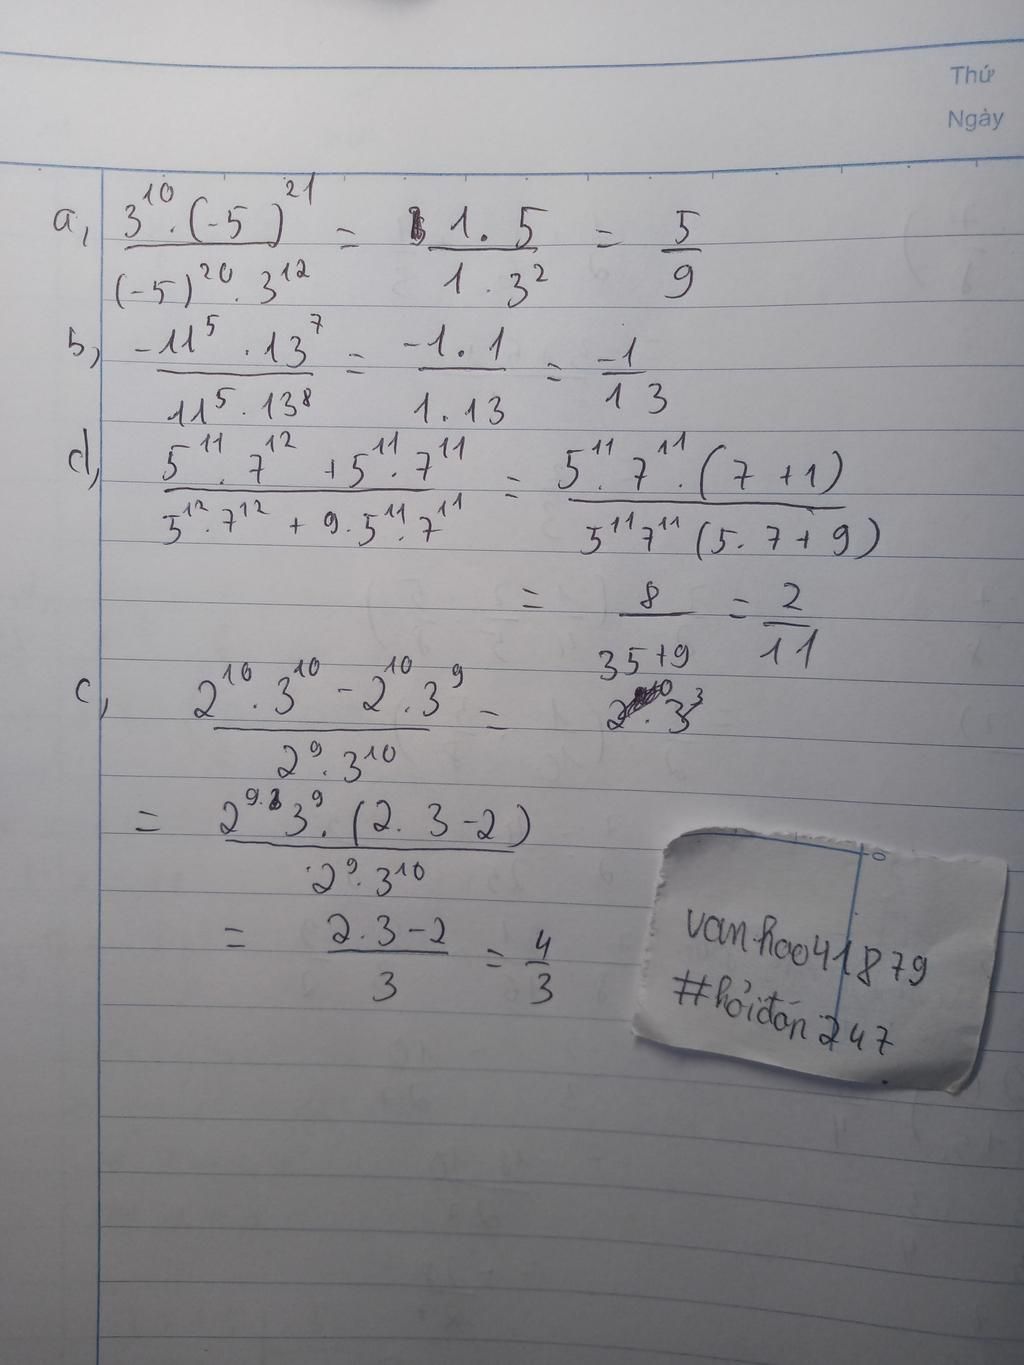 Thứ
Ngày
a, 3^10 . (-5)^21 / (-5)^20 . 3^12 = 1 . 5 / 1 . 3^2 = 5/9
b, -11^5 . 13^7 / 11^5 . 13^8 = -1 . 1 / 1 . 13 = -1/13
d, 5^11 . 7^12 + 5^11 . 7^11 / 5^12 . 7^12 + 9 . 5^11 . 7^11 = 5^11 . 7^11 . (7 + 1) / 5^11 7^11 (5 . 7 + 9)
= 8 / 35 + 9 = 2/11
c, 2^10 . 3^10 - 2^10 . 3^9 / 2^9 . 3^10 =
= 2^9 . 3^9 . (2 . 3 - 2) / 2^9 . 3^10
= 2 . 3 - 2 / 3 = 4/3
vanhao41879
#hỏiđán247